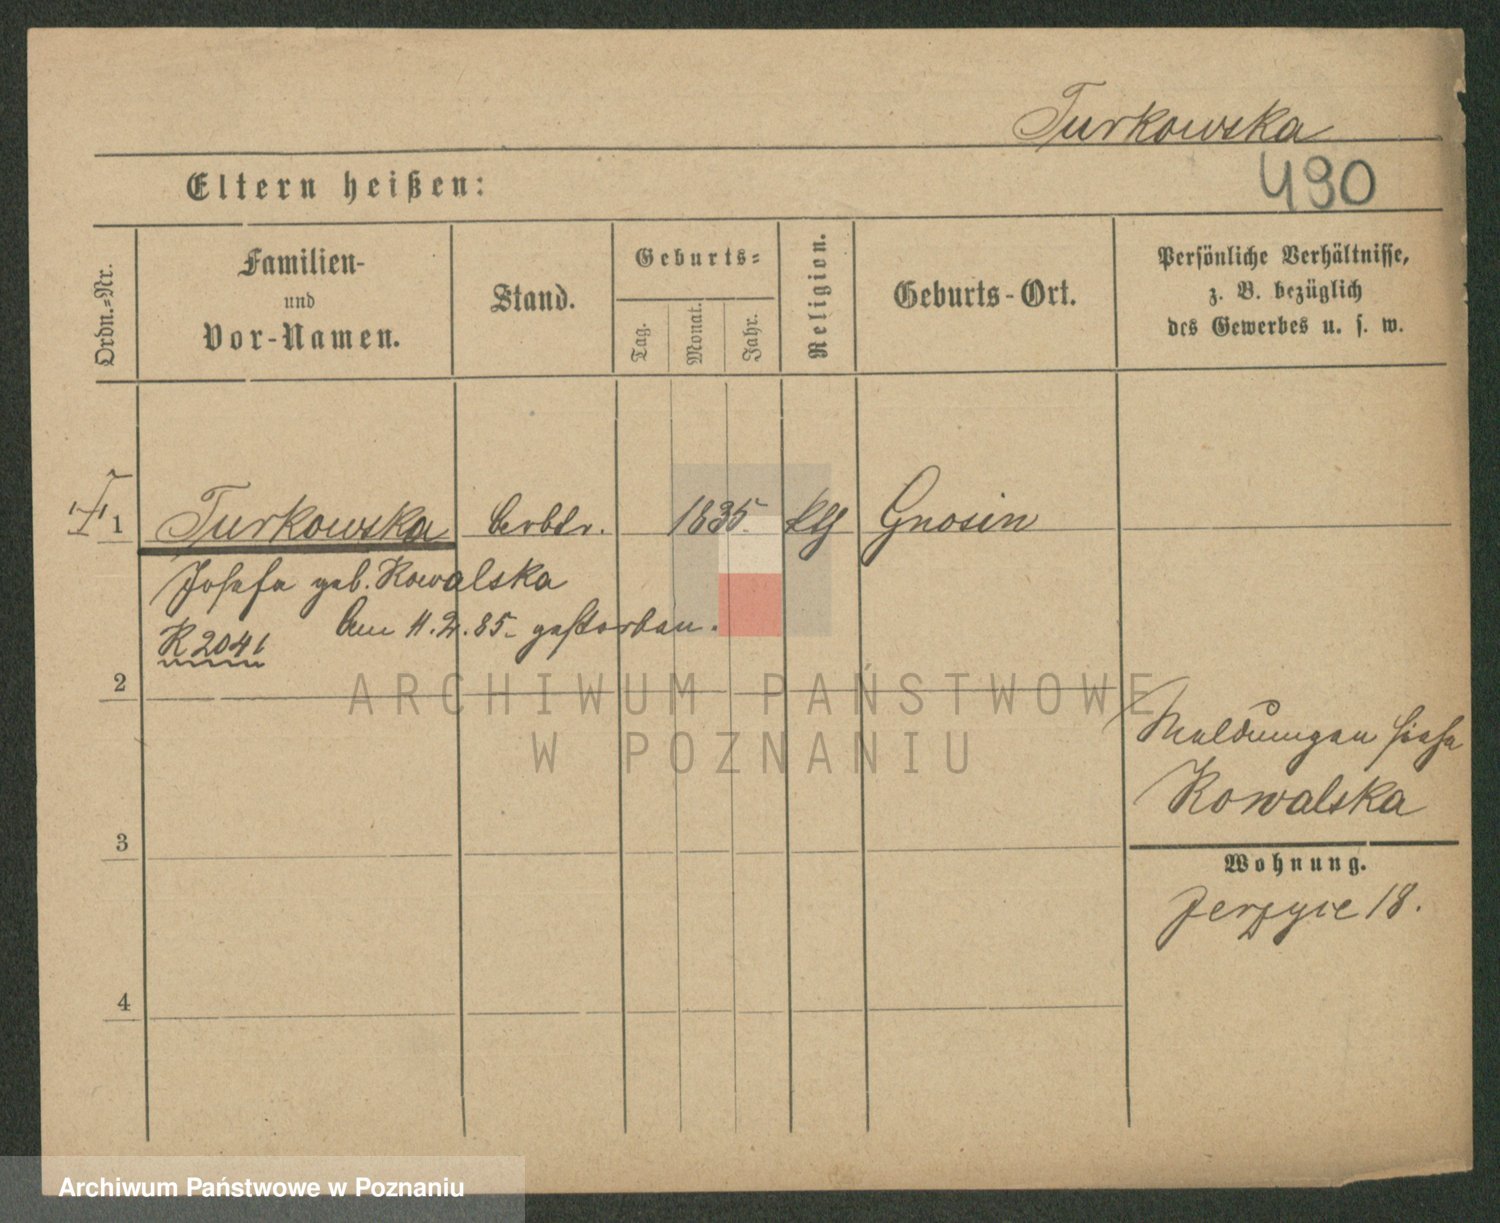 Turkowska
490
Eltern heißen:
Ordn.-Nr.
Familien-
und
Vor-Namen.
Stand.
Geburts-
Tag.
Monat.
Jahr.
Religion.
Geburts-Ort.
Persönliche Verhältnisse,
z. B. bezüglich
des Gewerbes u. s. w.
1 Turkowska Arbtr. 1835. ktl Gnosin
Josefa geb. Kowalska
Am 11.2.85. gestorben.
R 2041
2
Meldungen siehe
Kowalska
3
Wohnung.
Jerzyce 18.
4
ARCHIWUM PAŃSTWOWE
W POZNANIU
Archiwum Państwowe w Poznaniu